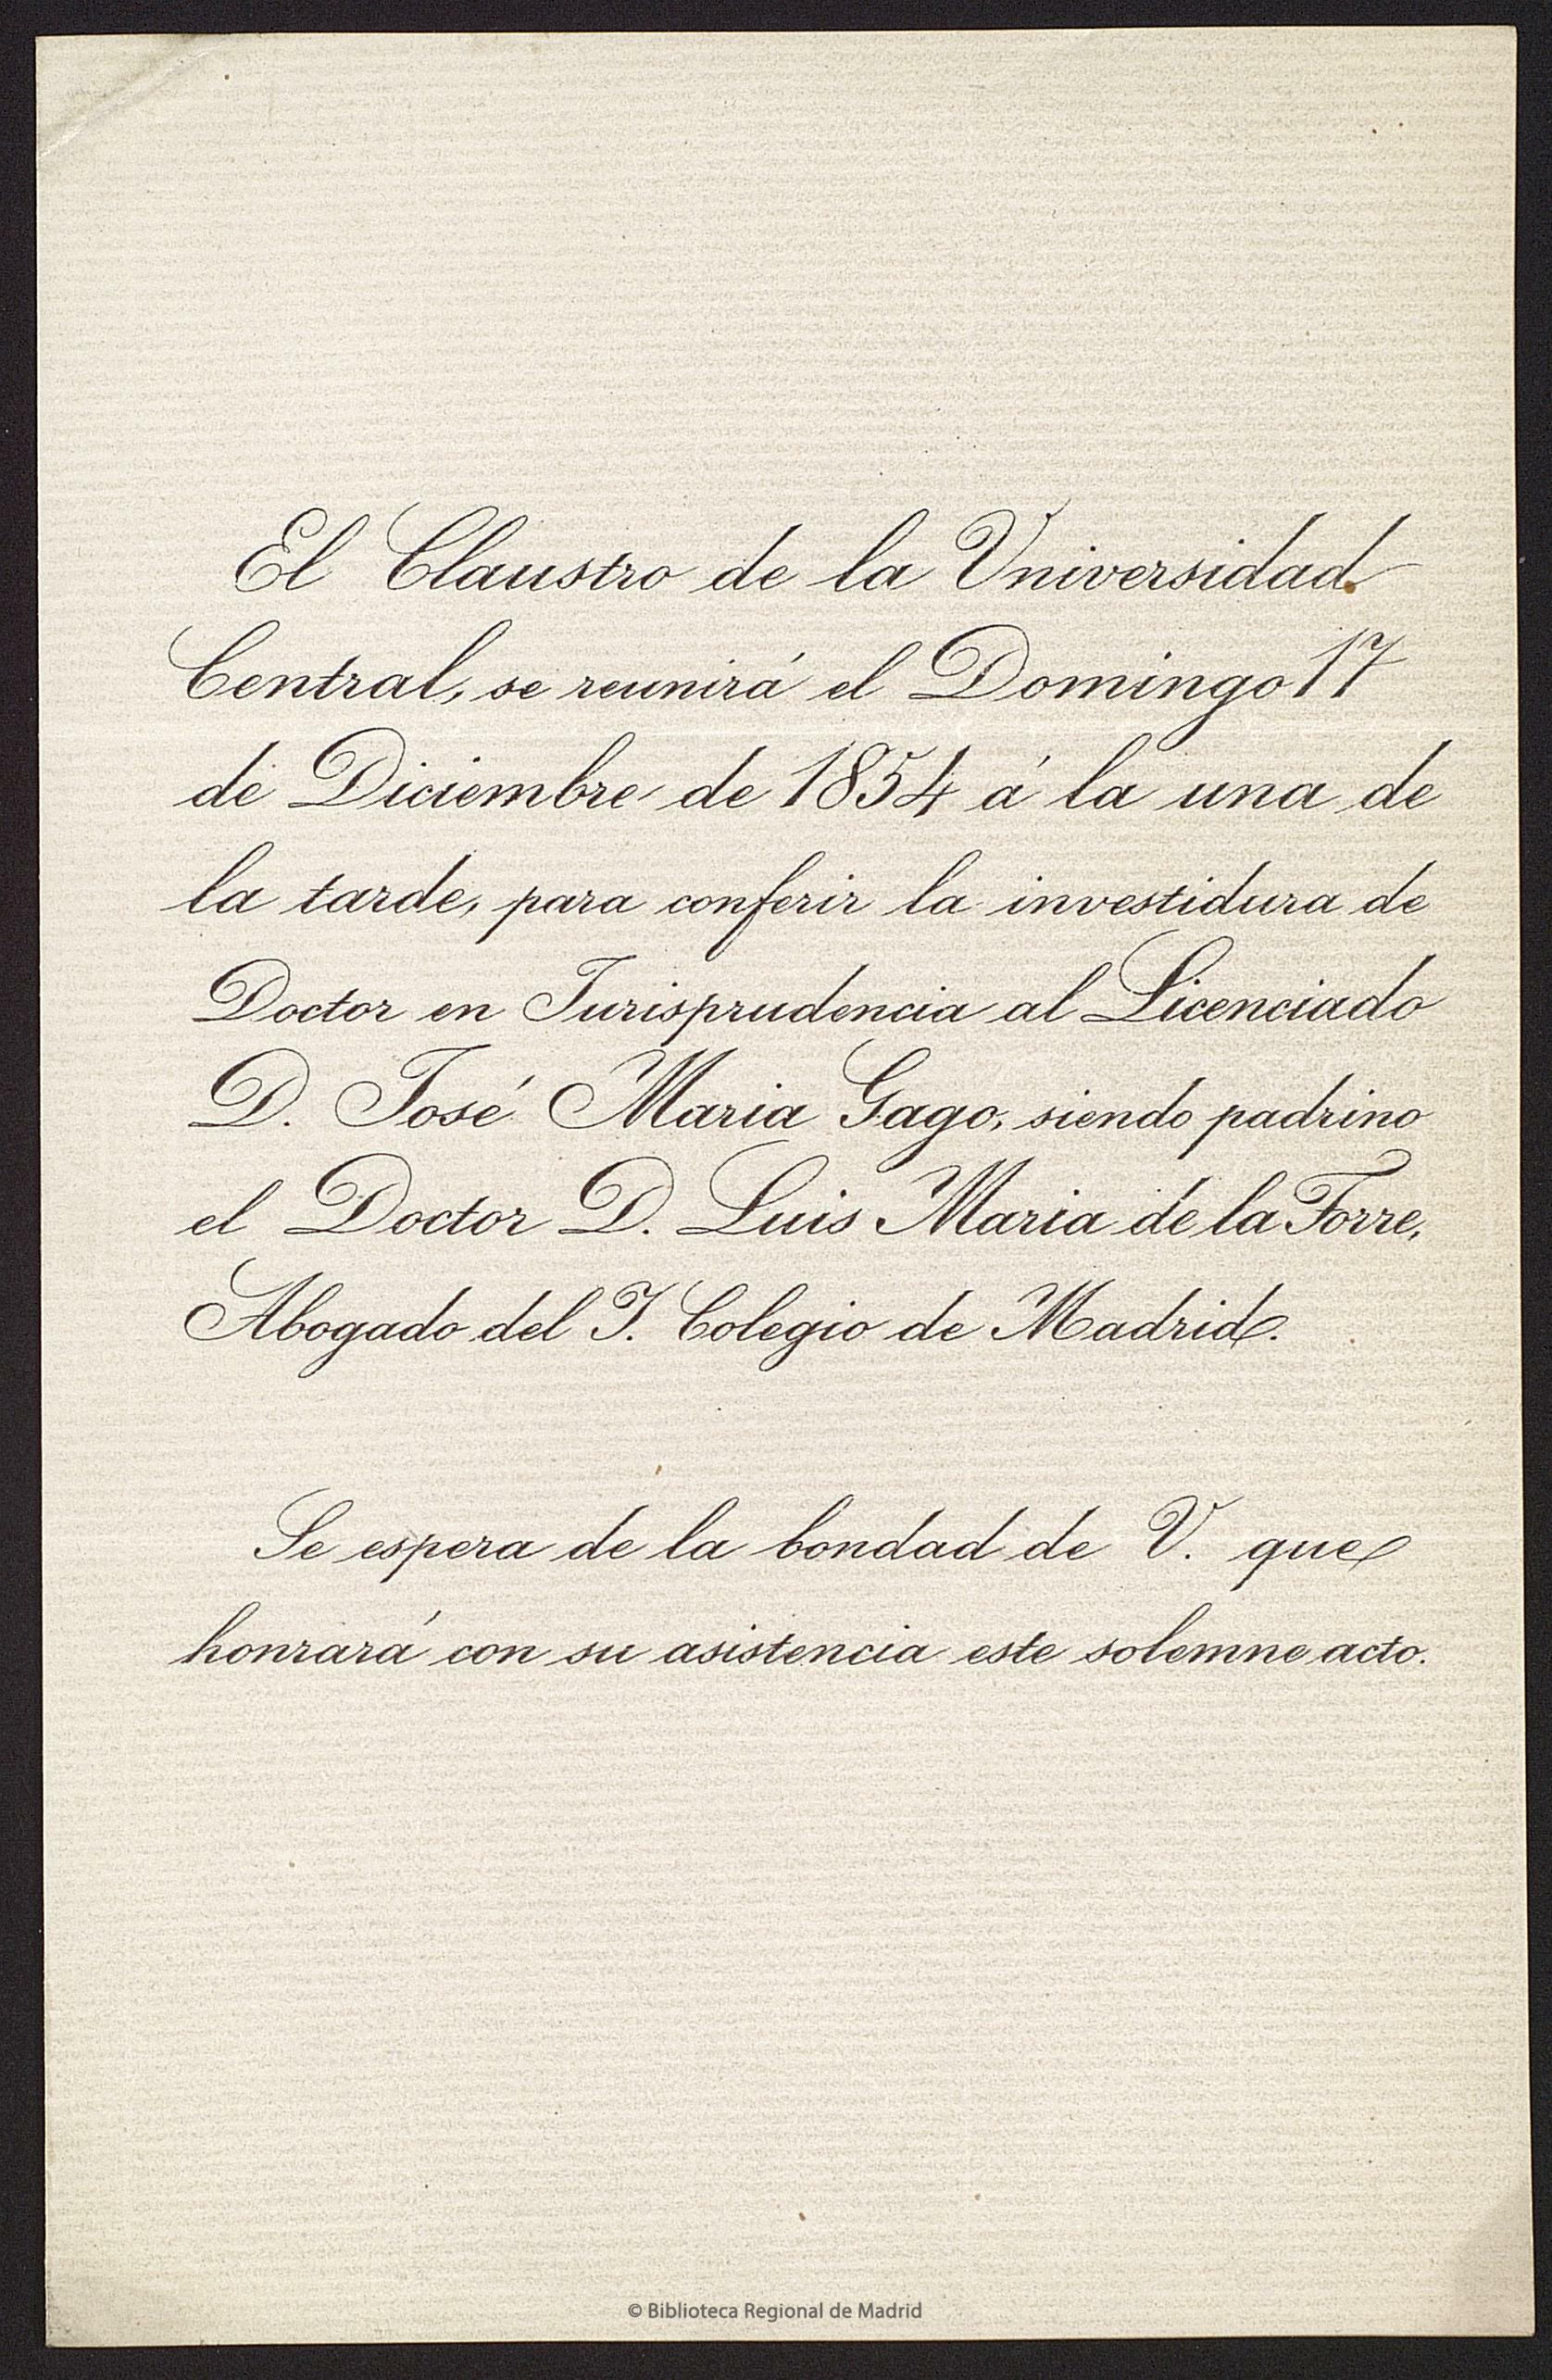 El Claustro de la Universidad
Central, se reunirá el Domingo 17
de Diciembre de 1854 á la una de
la tarde, para conferir la investidura de
Doctor en Jurisprudencia al Licenciado
D. José Maria Gago, siendo padrino
el Doctor D. Luis Maria de la Torre,
Abogado del I. Colegio de Madrid.
Se espera de la bondad de V. que
honrará con su asistencia este solemne acto.
© Biblioteca Regional de Madrid